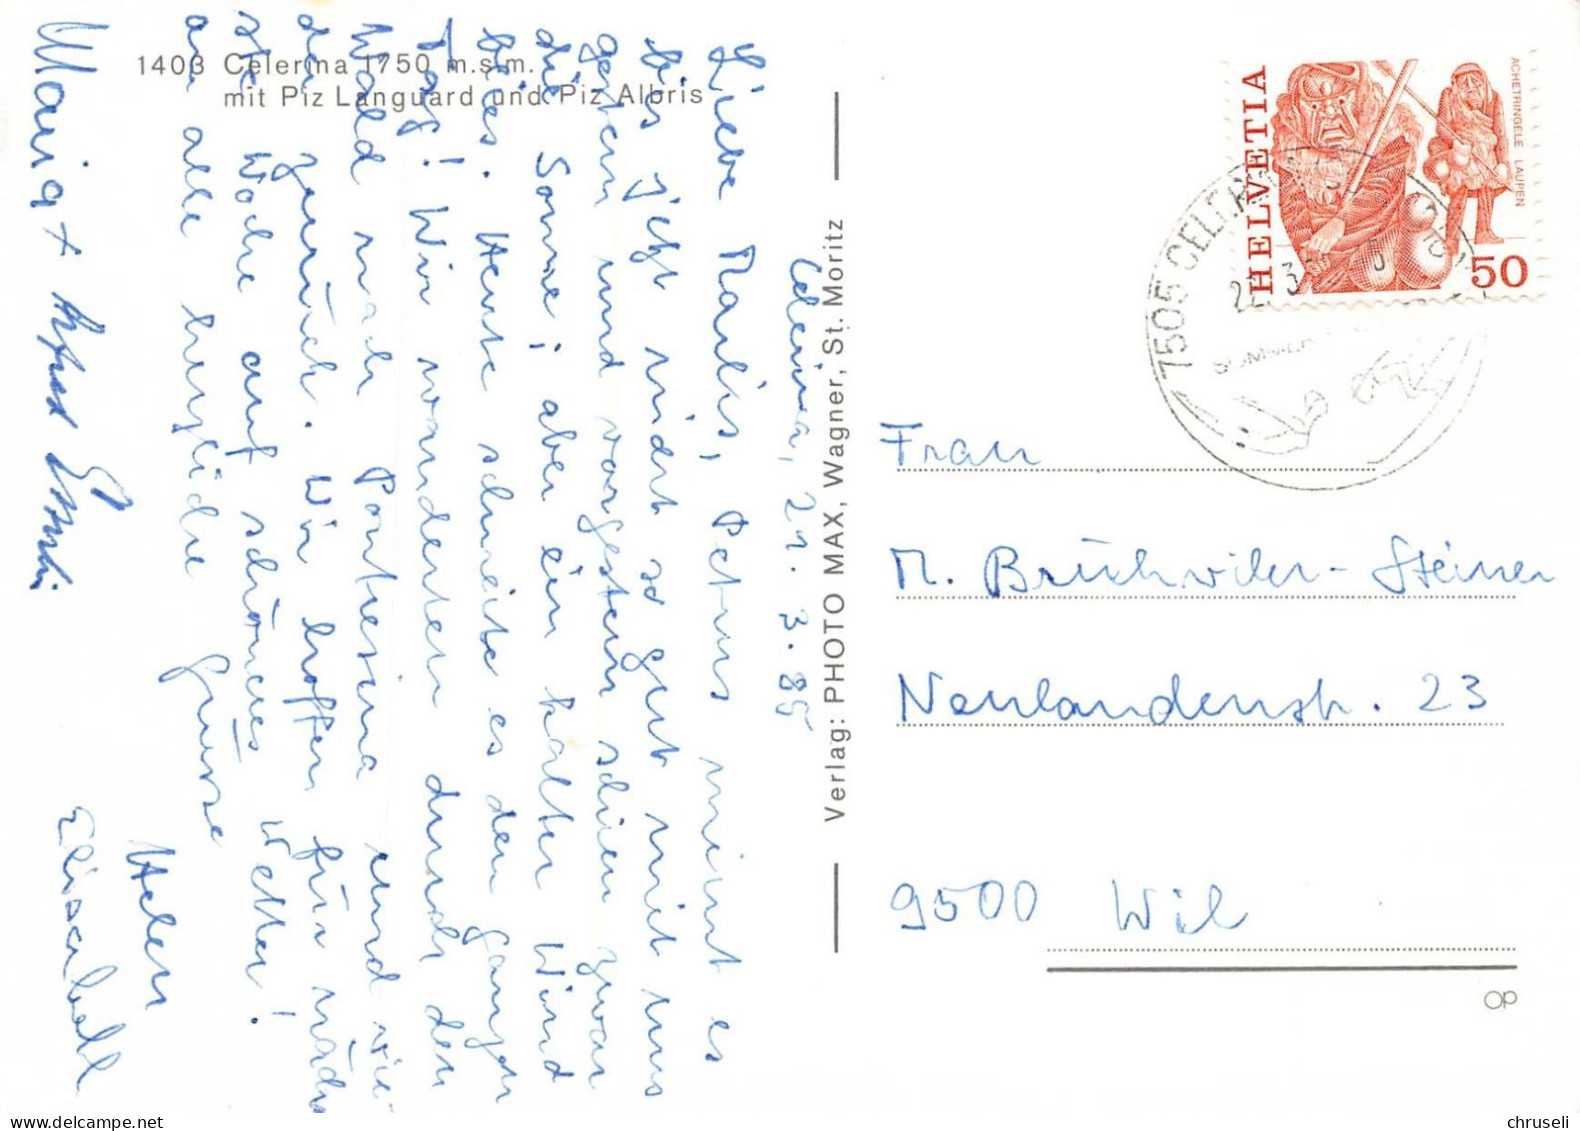 1403 Celerina 1750 m.s.m.
mit Piz Languard und Piz Albris
Celerina, 21. 3. 85
Liebe Marlis, Petrus meint es
bis jetzt nicht so gut mit uns
gestern und vorgestern schien zwar
die Sonne, aber ein kalter Wind
blies. Heute schneite es den ganzen
Tag! Wir wanderten durch den
Wald nach Pontresina und wie-
der zurück. Wir hoffen für näch-
ste Woche auf schönes Wetter!
an alle herzliche Grüsse
Helen
Elisabeth
Verlag: PHOTO MAX, Wagner, St. Moritz
HELVETIA
ACHETRINGELE LAUPEN
50
7505 CELERINA
Frau
M. Brühwiler-Steiner
Neulandenstr. 23
9500 Wil
OP
chruseli